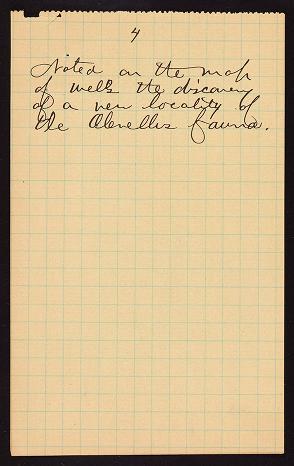 4
Noted on the map
of wells the discovery
of a new locality of
the Olenellus fauna.